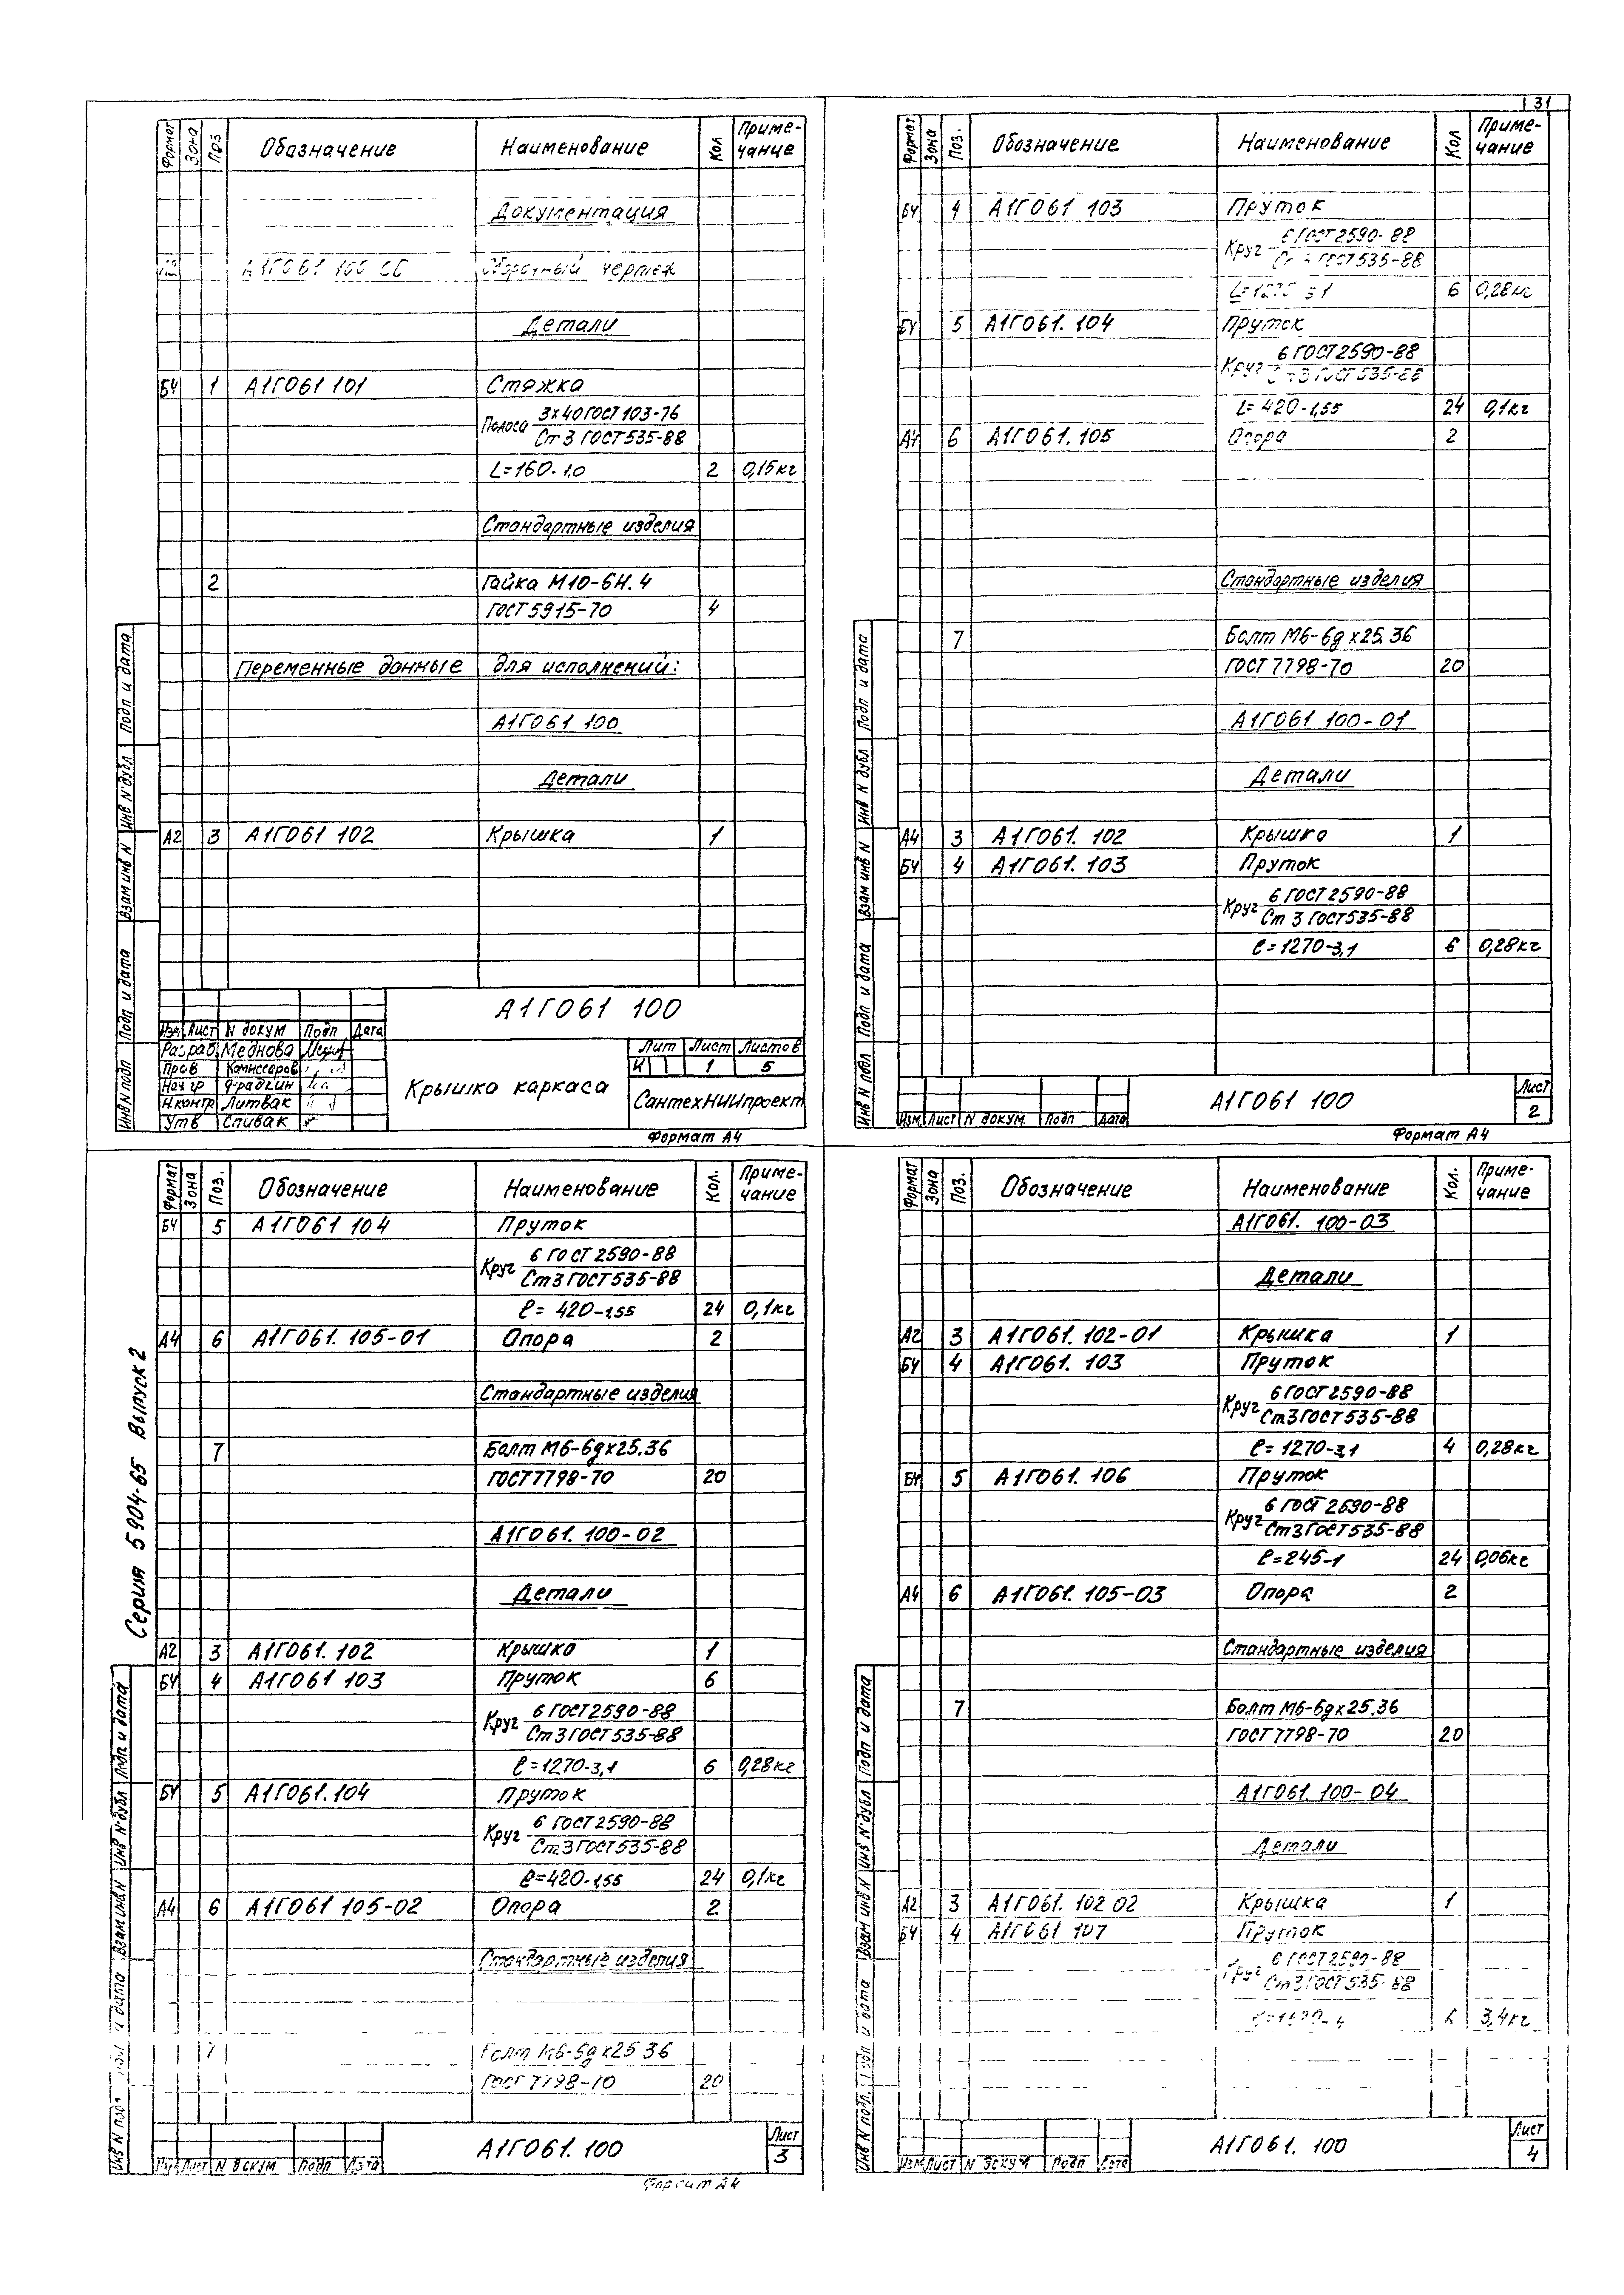 31
Формат Зона Поз Обозначение Наименование Кол Приме-
чание
Документация
А1Г061 100 СБ Сборочный чертеж
Детали
БЧ 1 А1Г061 101 Стяжка
Полоса 3х40 ГОСТ 103-76
Ст 3 ГОСТ 535-88
L=160-1.0 2 0,15кг
Стандартные изделия
2 Гайка М10-6Н.4
ГОСТ 5915-70 4
Переменные данные для исполнений:
А1Г061 100
Детали
А2 3 А1Г061 102 Крышка 1
А1Г061 100
Изм. Лист N докум Подп Дата
Разраб. Меднова
Пров Комиссаров
Нач гр
Н.контр Литвак
Утв Спивак
Крышка каркаса
Лит Лист Листов
И 1 5
СантехНИИпроект
Формат А4
Инв N подл Подп и дата Взам инв N Инв N дубл Подп и дата
Формат Зона Поз. Обозначение Наименование Кол Приме-
чание
БЧ 4 А1Г061 103 Пруток
Круг 6 ГОСТ 2590-88
Ст 3 ГОСТ 535-88
6 0,28кг
БЧ 5 А1Г061. 104 Пруток
Круг 6 ГОСТ 2590-88
Ст 3 ГОСТ 535-88
L= 420-1,55 24 0,1кг
А4 6 А1Г061. 105 Опора 2
Стандартные изделия
7 Болт М6-6gх25.36
ГОСТ 7798-70 20
А1Г061 100-01
Детали
А4 3 А1Г061. 102 Крышка 1
БЧ 4 А1Г061. 103 Пруток
Круг 6 ГОСТ 2590-88
Ст 3 ГОСТ 535-88
ℓ=1270-3,1 6 0,28кг
Изм. Лист N докум. Подп Дата
А1Г061 100
Лист
2
Формат А4
Инв N подл Подп и дата Взам инв N Инв N дубл Подп и дата
Серия 5 904-65 Выпуск 2
Формат Зона Поз. Обозначение Наименование Кол. Приме-
чание
БЧ 5 А1Г061 104 Пруток
Круг 6 ГОСТ 2590-88
Ст 3 ГОСТ 535-88
ℓ= 420-1,55 24 0,1кг
А4 6 А1Г061. 105-01 Опора 2
Стандартные изделия
7 Болт М6-6gх25.36
ГОСТ 7798-70 20
А1Г061. 100-02
Детали
А2 3 А1Г061. 102 Крышка 1
БЧ 4 А1Г061 103 Пруток 6
Круг 6 ГОСТ 2590-88
Ст 3 ГОСТ 535-88
ℓ=1270-3,1 6 0,28кг
БЧ 5 А1Г061.104 Пруток
Круг 6 ГОСТ 2590-88
Ст.3 ГОСТ 535-88
ℓ=420-1,55 24 0,1кг
А4 6 А1Г061 105-02 Опора 2
Стандартные изделия
7 Болт М6-6gх25 36
ГОСТ 7798-70 20
Лист N докум Подп Дата
А1Г061. 100
Лист
3
Формат А4
Инв N подл и дата Взам инв.N Инв N дубл Подп и дата
Формат Зона Поз. Обозначение Наименование Кол. Приме-
чание
А1Г061. 100-03
Детали
А2 3 А1Г061. 102-01 Крышка 1
БЧ 4 А1Г061. 103 Пруток
Круг 6 ГОСТ 2590-88
Ст 3 ГОСТ 535-88
ℓ= 1270-3,1 4 0,28кг
БЧ 5 А1Г061. 106 Пруток
Круг 6 ГОСТ 2590-88
Ст 3 ГОСТ 535-88
ℓ=245-1 24 0,06кг
А4 6 А1Г061. 105-03 Опора 2
Стандартные изделия
7 Болт М6-6gх25.36
ГОСТ 7798-70 20
А1Г061. 100-04
Детали
А2 3 А1Г061. 102 02 Крышка 1
БЧ 4 А1Г061 107 Пруток
Круг 6 ГОСТ 2590-88
Ст 3 ГОСТ 535-88
3,4кг
Изм Лист N докум Подп Дата
А1Г061. 100
Лист
4
Инв N подл. Подп и дата Взам инв N Инв N дубл Подп и дата